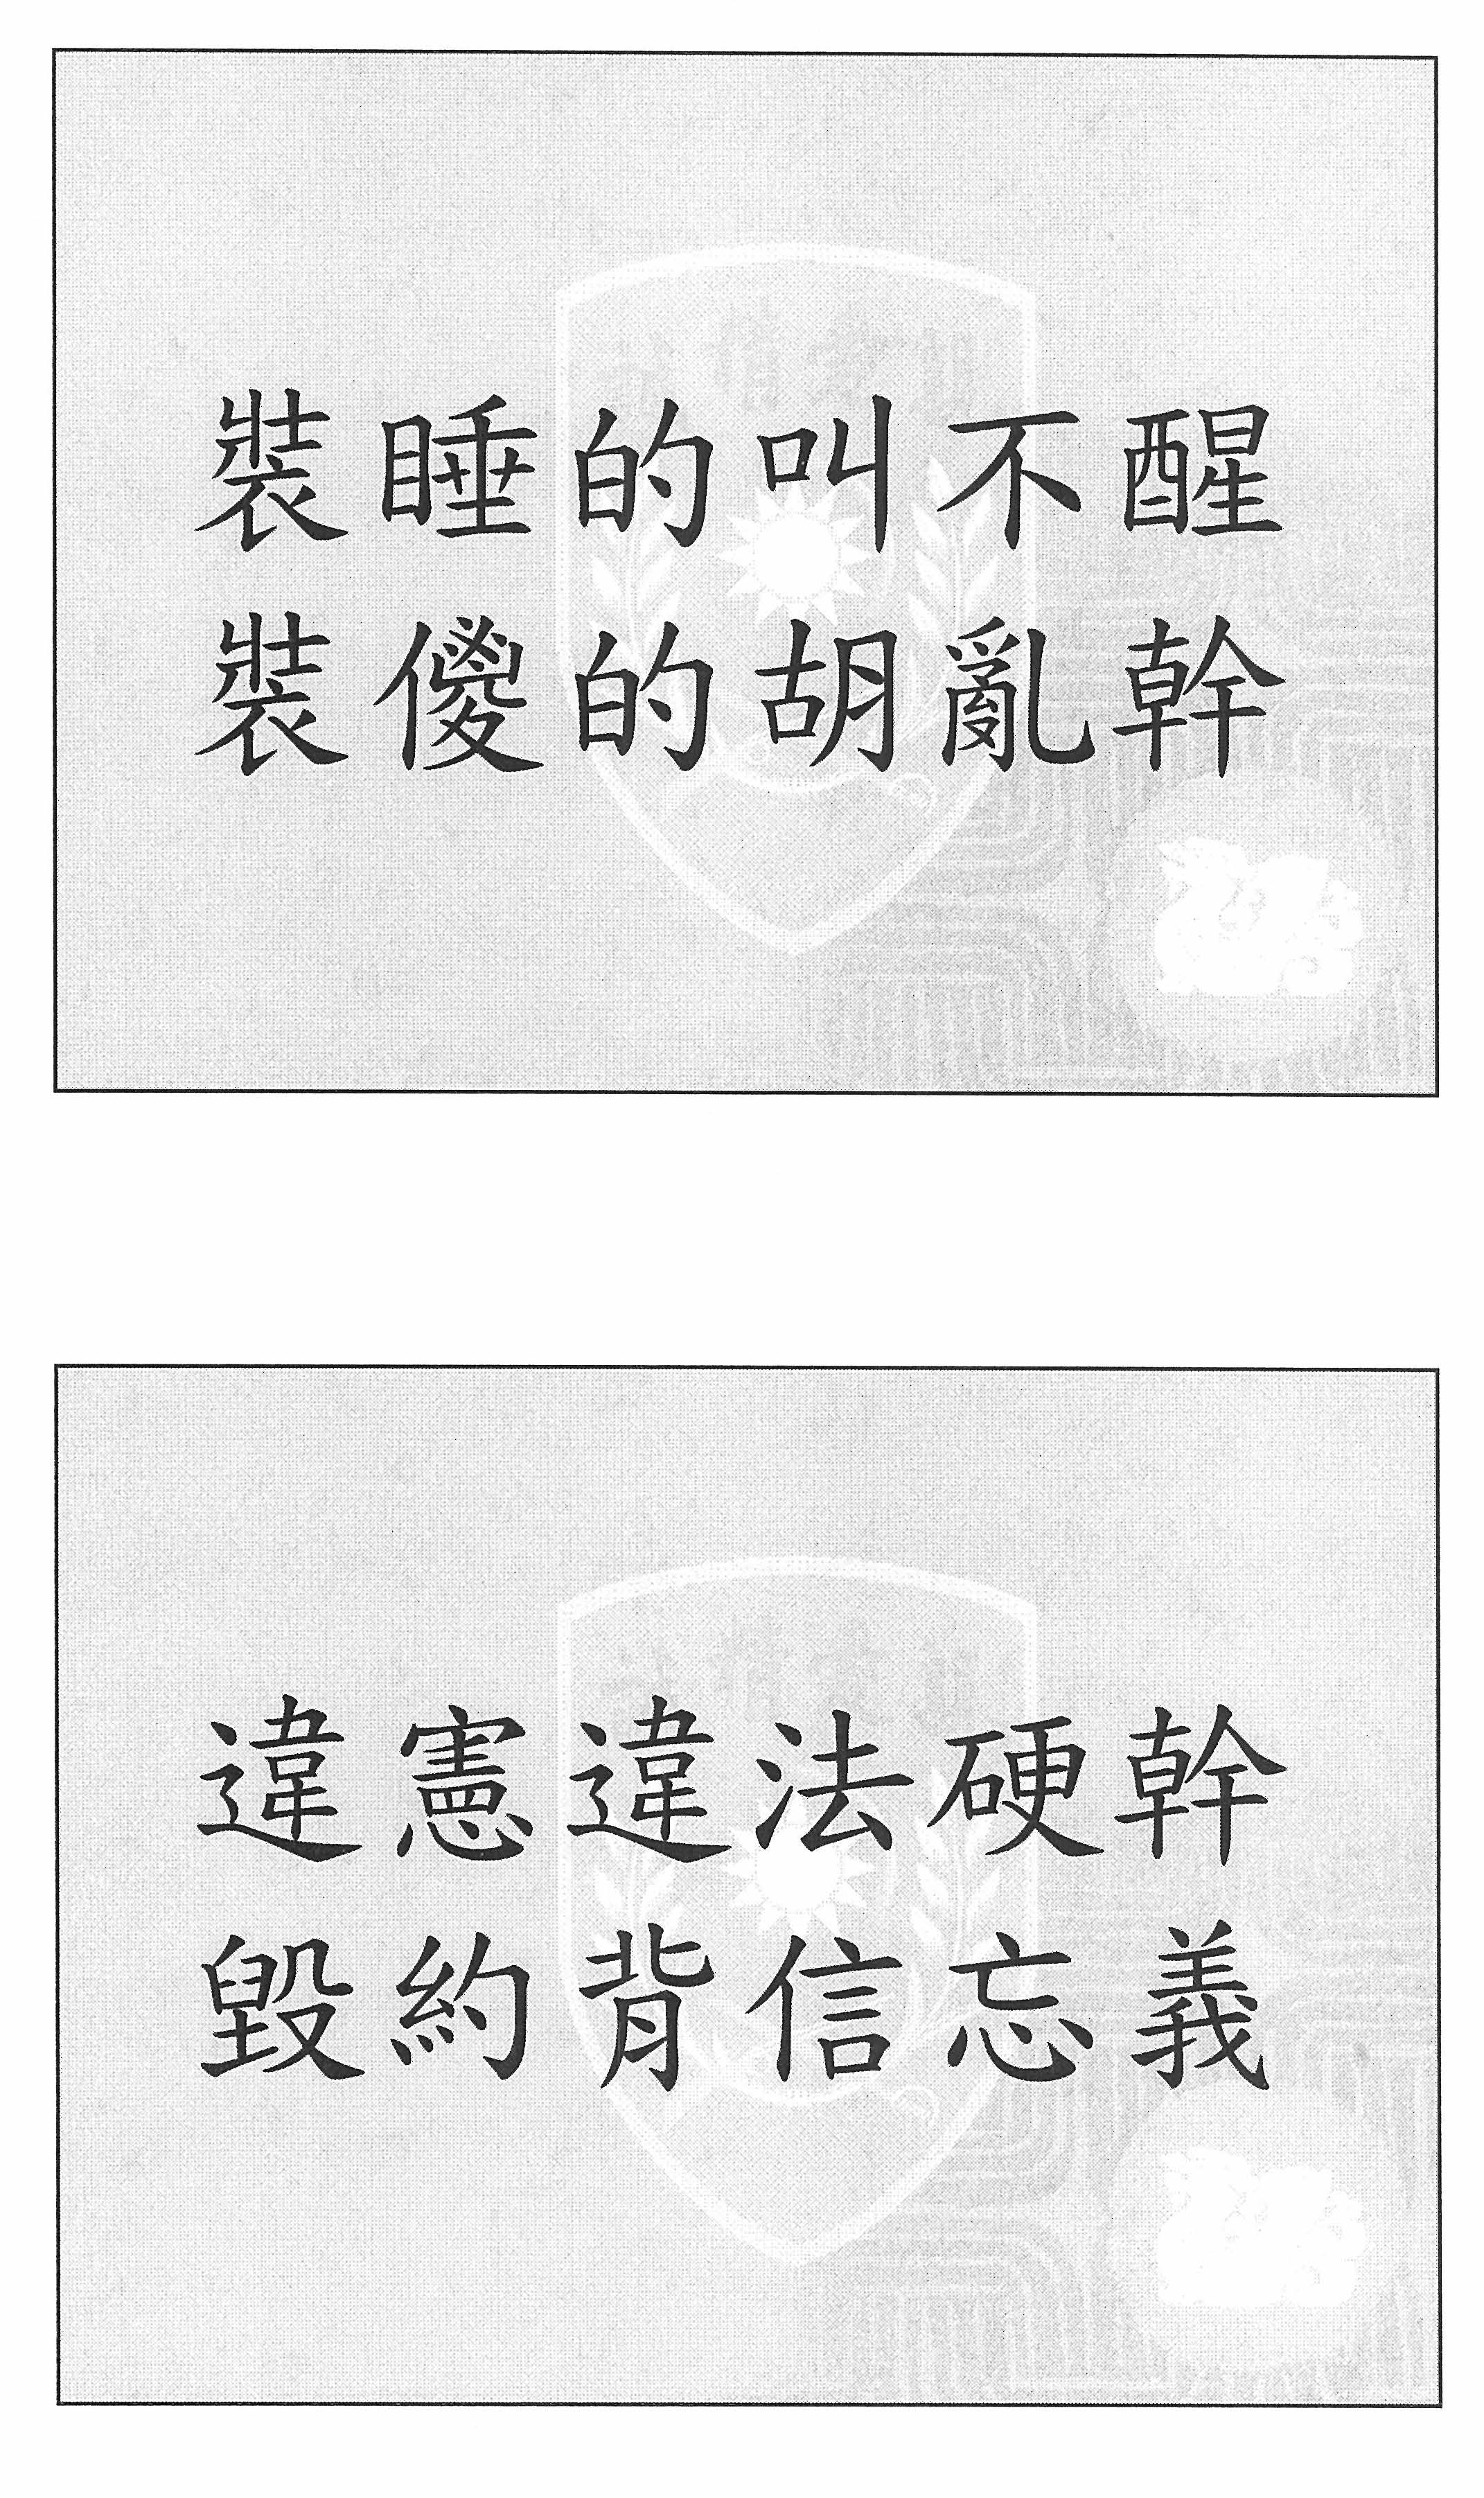 裝睡的叫不醒
裝傻的胡亂幹
違憲違法硬幹
毀約背信忘義